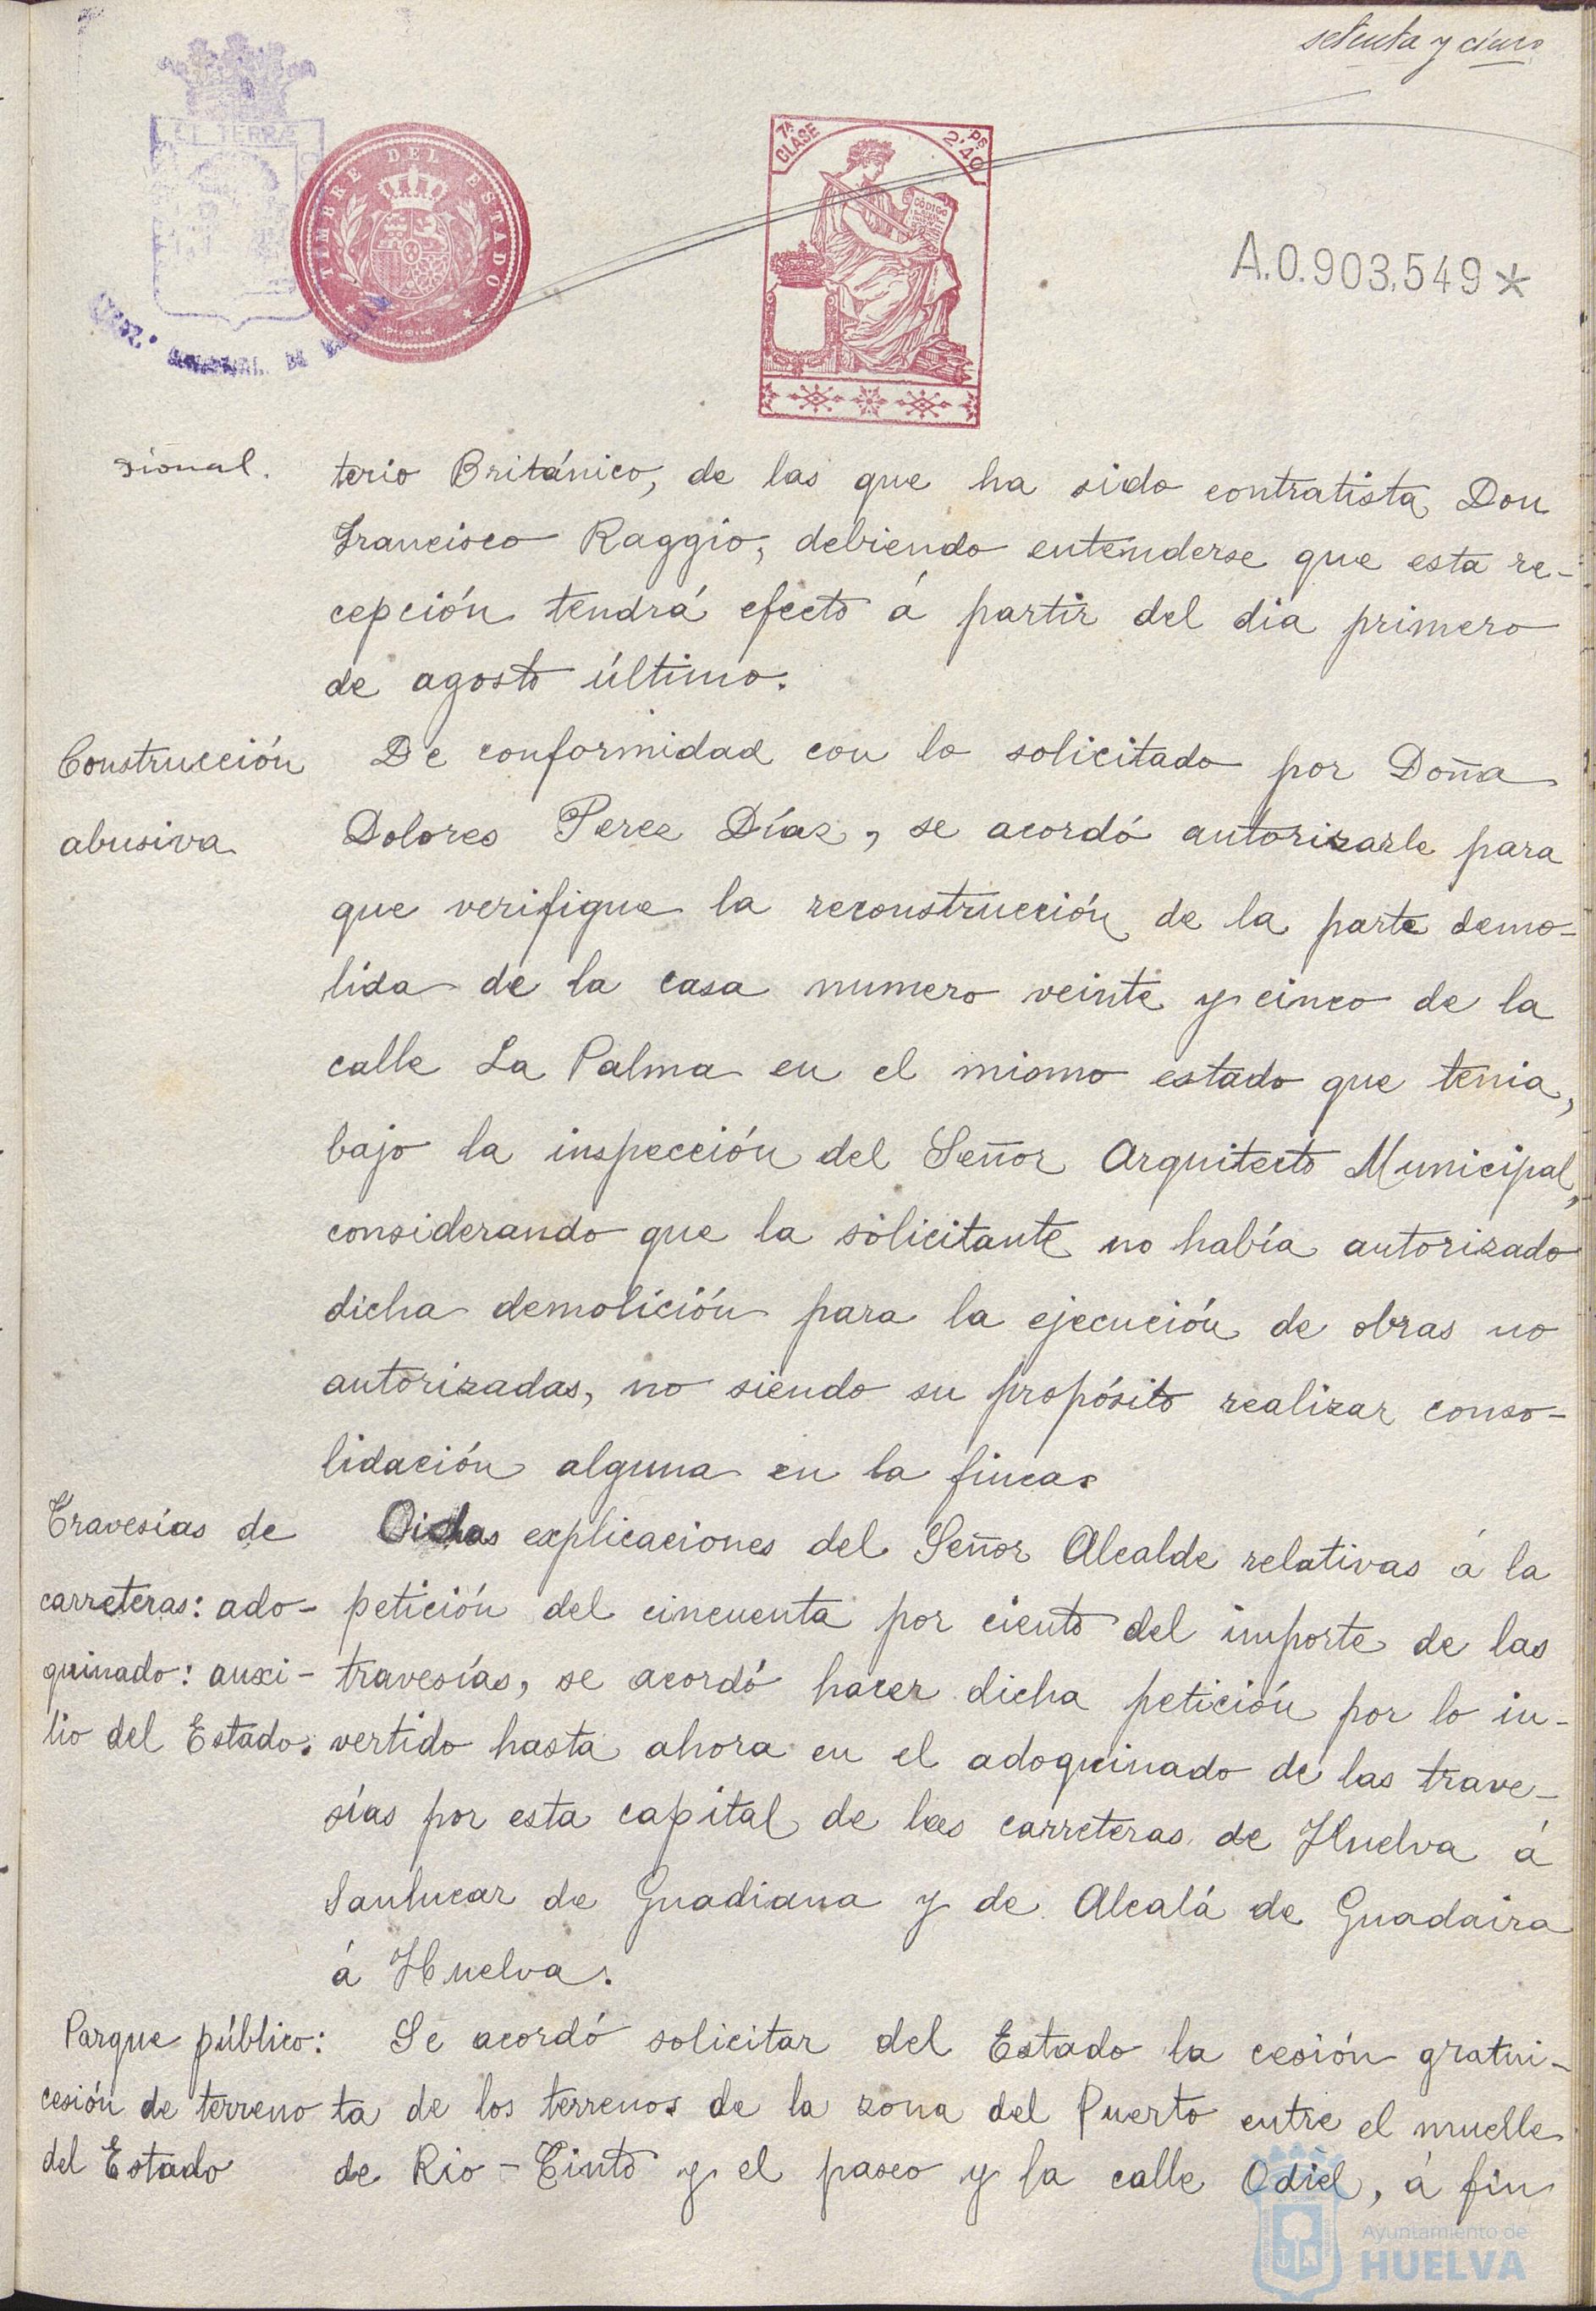 setenta y cinco
TIMBRE DEL ESTADO
7ª CLASE
Ps. 2'40
CÓDIGO
A.0.903,549*
sional.
terio Británico, de las que ha sido contratista Don
Francisco Raggio, debiendo entenderse que esta re-
cepción tendrá efecto á partir del dia primero
de agosto último.
Construcción
abusiva
De conformidad con lo solicitado por Doña
Dolores Perez Díaz, se acordó autorizarle para
que verifique la reconstrucción de la parte demo-
lida de la casa numero veinte y cinco de la
calle La Palma en el mismo estado que tenia,
bajo la inspección del Señor Arquitecto Municipal,
considerando que la solicitante no había autorizado
dicha demolición para la ejecución de obras no
autorizadas, no siendo su propósito realizar conso-
lidación alguna en la finca.
Travesías de
carreteras: ado-
quinado: auxi-
lio del Estado.
Oidas explicaciones del Señor Alcalde relativas á la
petición del cincuenta por ciento del importe de las
travesías, se acordó hacer dicha petición por lo in-
vertido hasta ahora en el adoquinado de las trave-
sías por esta capital de las carreteras de Huelva á
Sanlucar de Guadiana y de Alcalá de Guadaira
á Huelva.
Parque público:
cesión de terreno
del Estado
Se acordó solicitar del Estado la cesión gratui-
ta de los terrenos de la zona del Puerto entre el muelle
de Rio-Tinto y el paseo y la calle Odiel, á fin
Ayuntamiento de
HUELVA